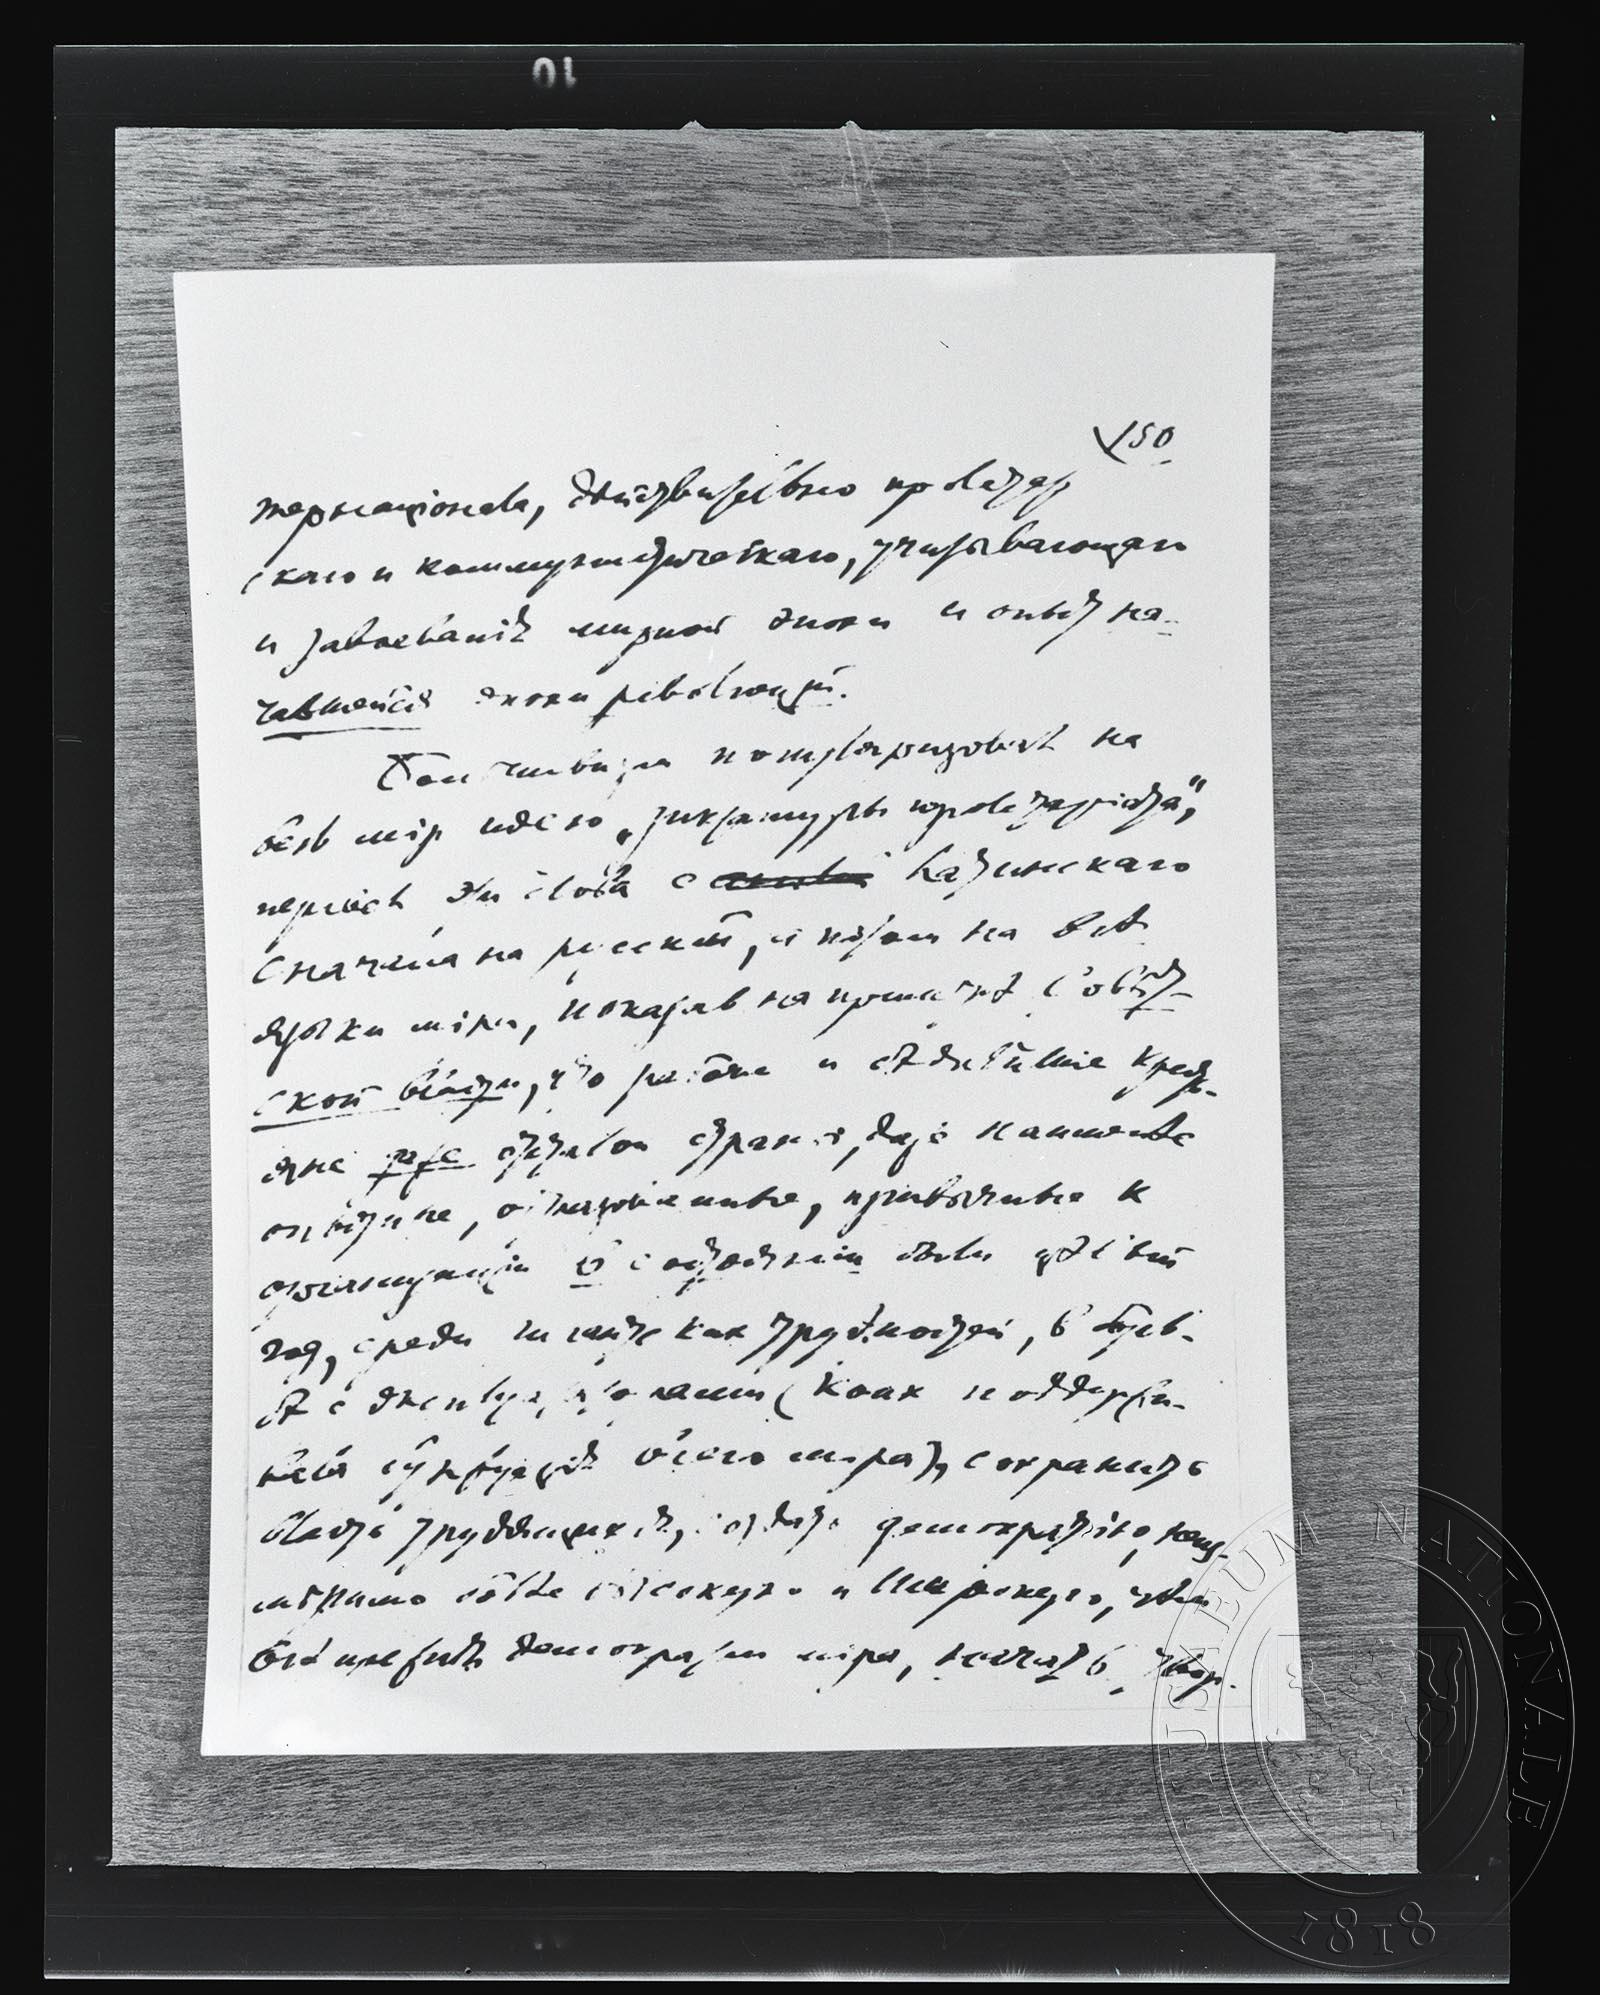 10
150
тернационала, действительно пролетар
ского и коммунистического, учитывающего
и завоевания мирной эпохи и опыт на-
чавшейся эпохи революций.
Большевизм популяризовал на
весь мир идею „диктатуры пролетариата",
перевел эти слова с латинского
сначала на русский, а потом на все
языки мира, показав на примере Совет-
ской власти, что рабочие и беднейшие кресть-
яне даже отсталой страны, даже наименее
опытные, образованные, привычные к
организации в состоянии были целый
год, среди гигантских трудностей, в борь-
бе с эксплуататорами (коих поддержи-
вала буржуазия всего мира), сохранить
власть трудящихся, создать демократию, неиз-
меримо более высокую и широкую, чем
все прежние демократии мира, начать твор-
MUSAEUM NATIONALE
1818